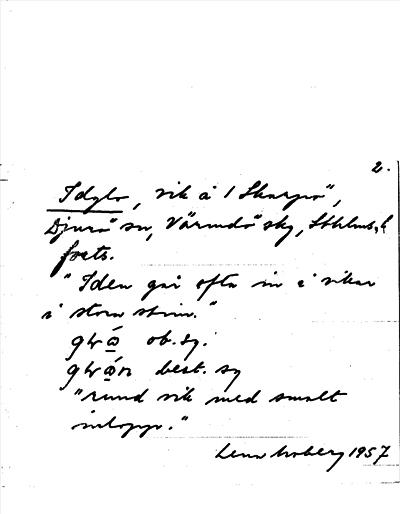 2.
Idglo, vik å / Skarpö",
Djurö sn, Värmdö skg, Sthlms l
forts.
"Iden går ofta in i viken
i stora stim."
ob. sg.
best. sg
"rund vik med smalt
inlopp."
Lena Moberg 1957